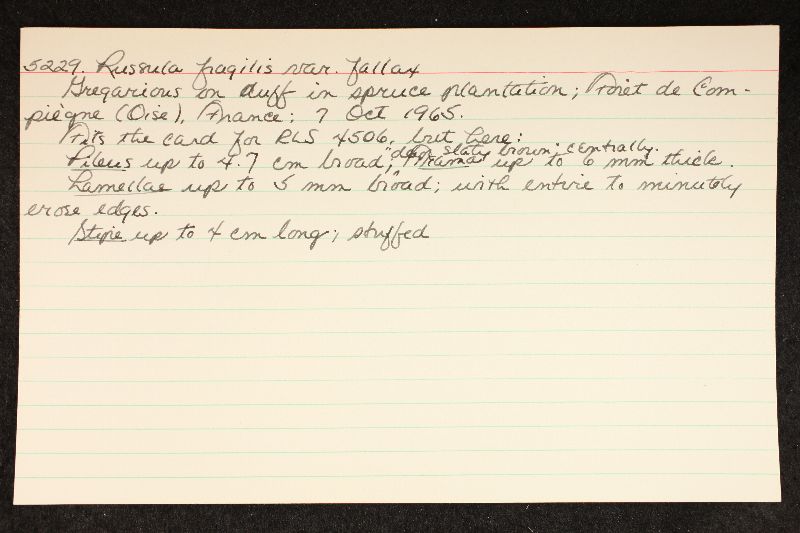 5229. Russula fragilis var. fallax
Gregarious on duff in spruce plantation; Forêt de Com-
piègne (Oise), France; 7 Oct 1965.
Fits the card for RLS 4506, but here:
Pileus up to 4.7 cm broad, "deep slaty brown" centrally. Trama up to 6 mm thick.
Lamellae up to 5 mm broad; with entire to minutely
erose edges.
Stipe up to 4 cm long; stuffed